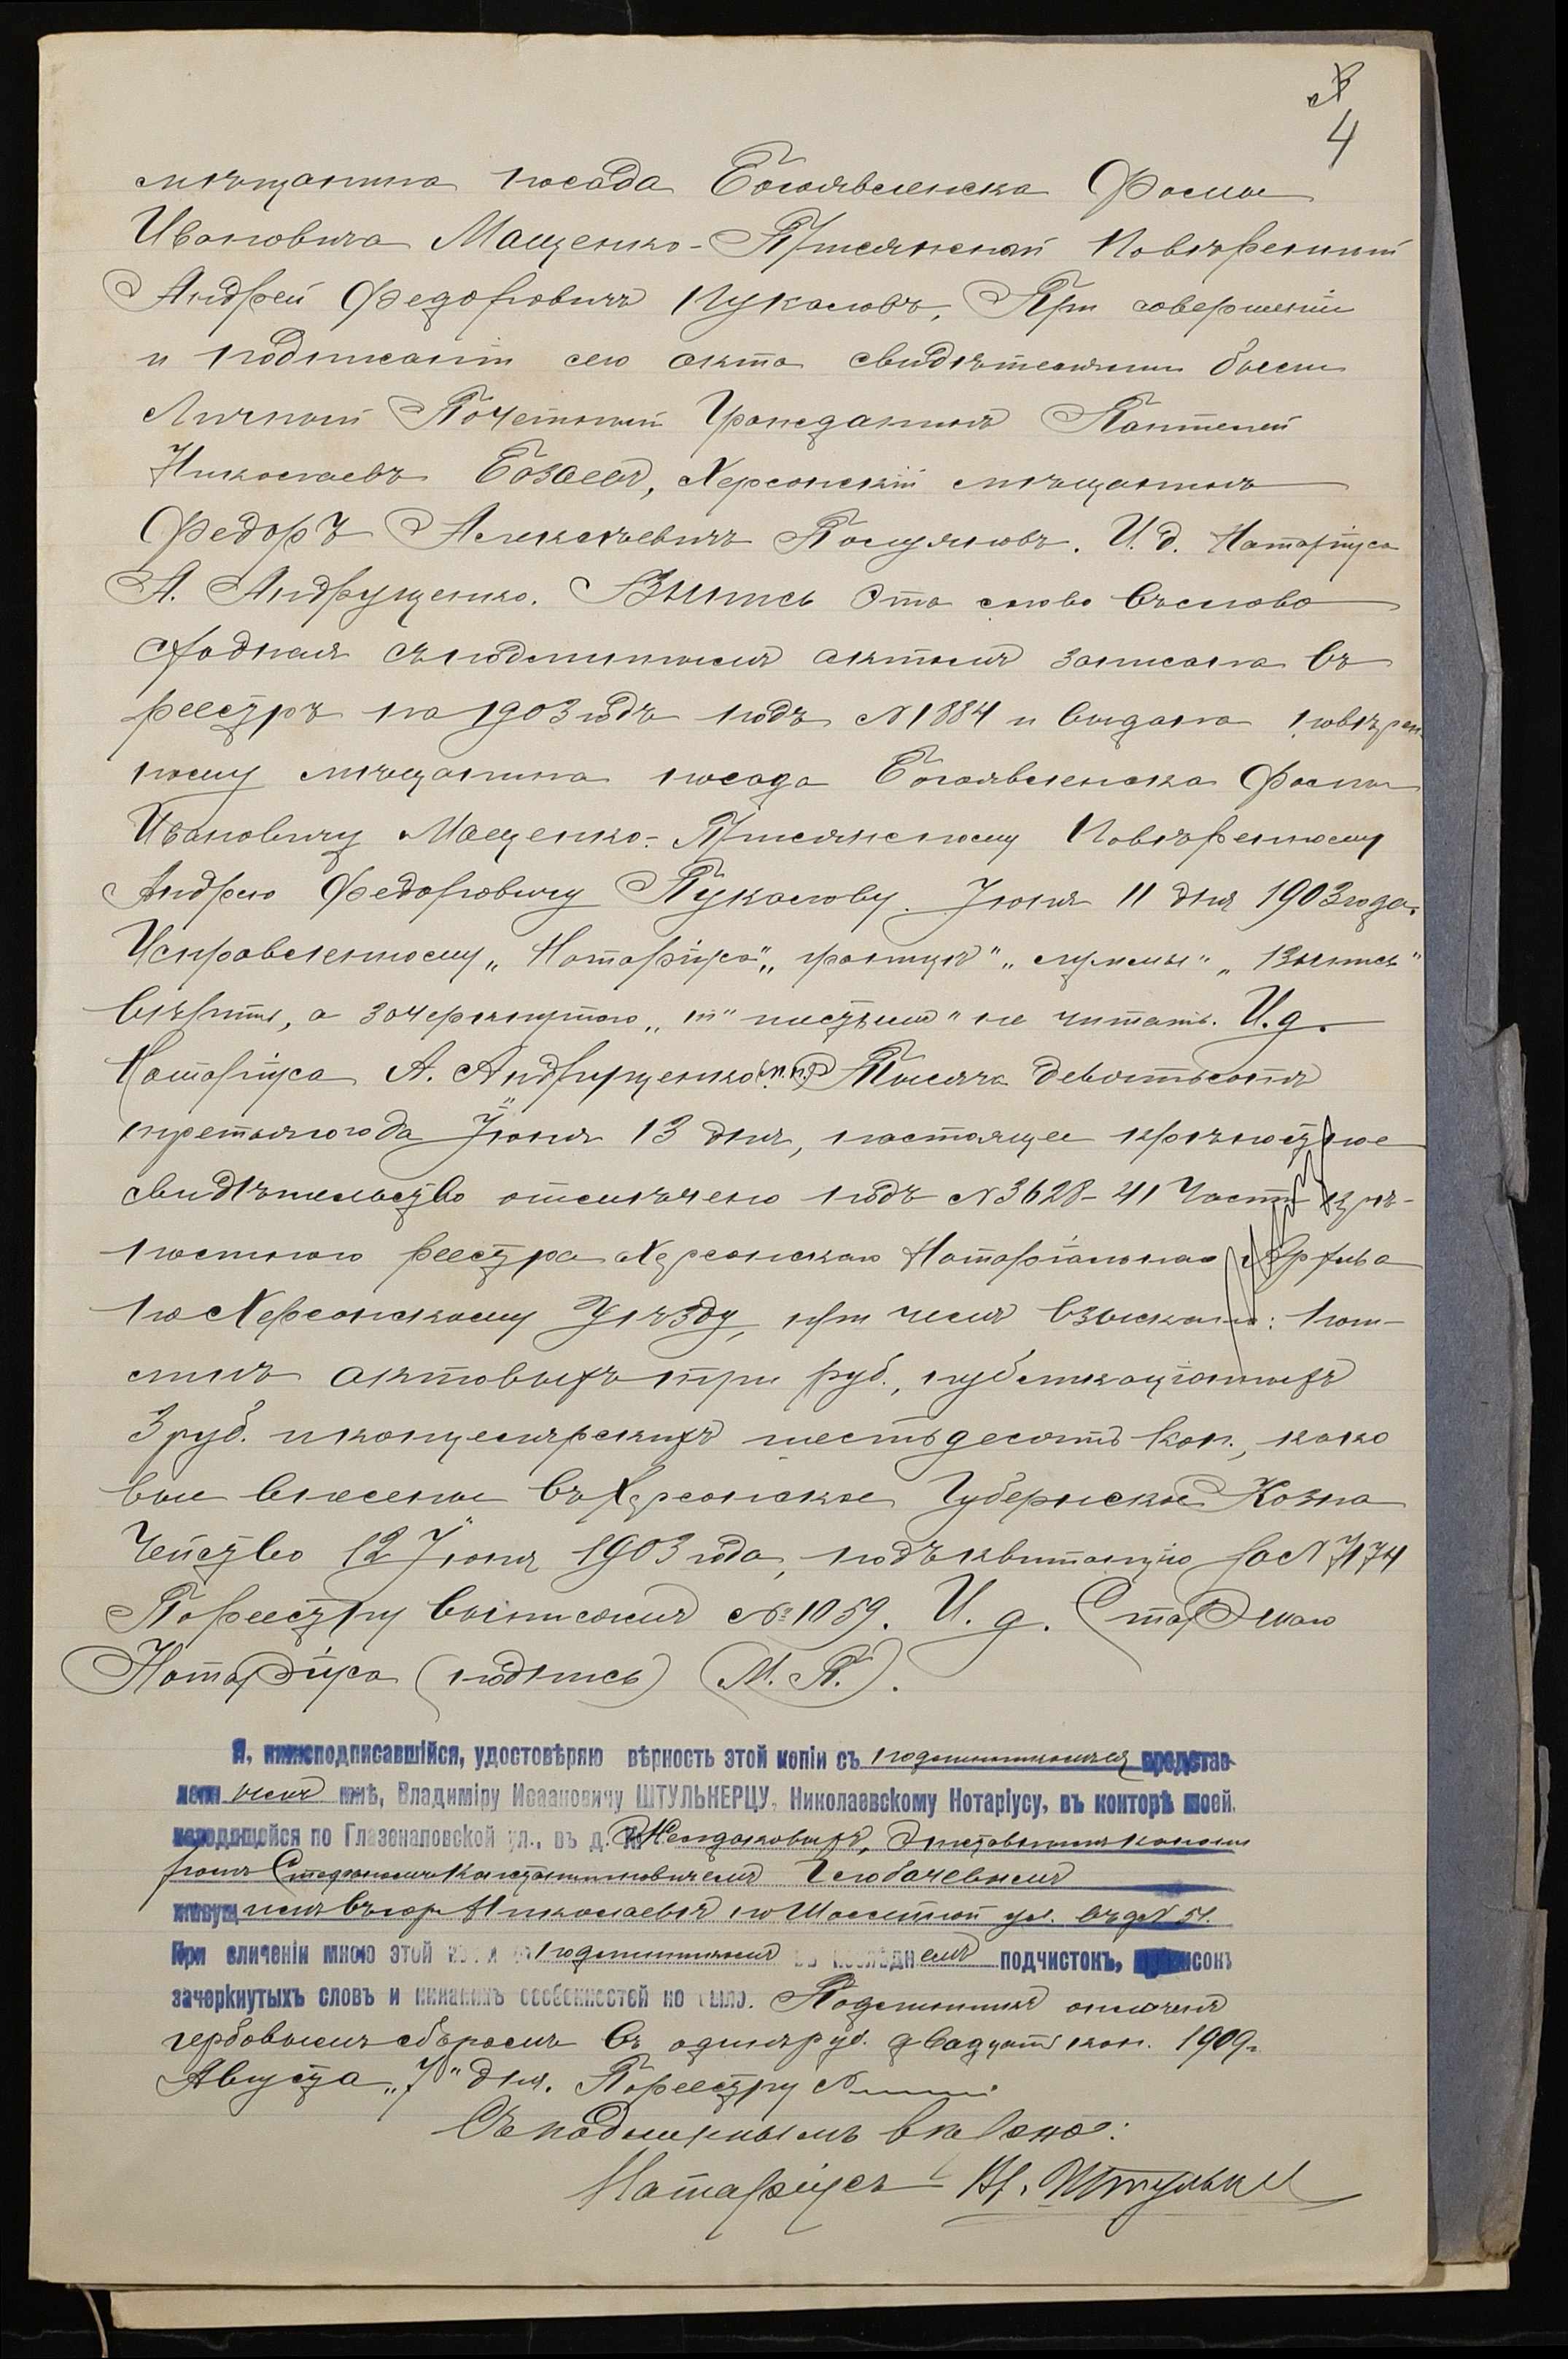 4
мѣщанина посада Богоявленска Фомы
Ивановича Мащенко-Присяжный Повѣренный
Андрей Федоровичъ Пукаловъ. При совершеніи
и подписаніи сего акта свидѣтелями были
Личный Почетный Гражданинъ Пантелей
Николаевъ Бозаевъ, Херсонскій мѣщанинъ
Федоръ Алексѣевичъ Полуяновъ. И. д. Нотаріуса
А. Андрущенко. Выпись эта слово въ слово
сходная съ подлиннымъ актомъ записана въ
реестръ на 1903 годъ подъ № 1884 и выдана повѣрен-
ному мѣщанина посада Богоявленска Фомы
Ивановичу Мащенко-Присяжному Повѣренному
Андрею Федоровичу Пукалову. Іюня 11 дня 1903 года.
Исправленному „Нотаріуса", „границъ" „ „Выпись"
вѣрить, а зачеркнутаго „ не читать. И. д.
Нотаріуса А. Андрущенко (м.п.) Тысяча девятьсотъ
третьяго года Іюня 13 дня, настоящее крѣпостное
свидѣтельство отмѣчено подъ № 3628-41 Части крѣ-
постного реестра Херсонскаго Нотаріальнаго Архива
по Херсонскому Уѣзду, при чемъ взыскано: пош-
линъ актовыхъ три руб., публикаціонныхъ
3 руб. и канцелярскихъ шестьдесятъ коп., како
вые внесены въ Херсонское Губернское Казна
чейство 12 Іюня 1903 года, подъ квитанцію за № 7174
По реестру выписокъ № 1059. И. д. Старшаго
Нотаріуса (подпись) (М. П.).
Я, нижеподписавшійся, удостовѣряю вѣрность этой копіи съ подлинникомъ ея представ-
леннымъ мнѣ, Владиміру Исааковичу ШТУЛЬКЕРЦУ, Николаевскому Нотаріусу, въ конторѣ моей,
находящейся по Глазенаповской ул., въ д.
Константиновичемъ
живущимъ въ гор. Николаевѣ по ул. въ д № 51.
При сличеніи мною этой копіи съ подлинникомъ въ послѣднемъ подчистокъ, приписокъ
зачеркнутыхъ словъ и никакихъ особенностей не было. Подлинникъ оплаченъ
гербовымъ сборомъ въ одинъ руб. двадцать коп. 1909 г.
Августа „7" дня. По реестру №
Съ подлиннымъ вѣрно:
Нотаріусъ Вл. Штулькерц